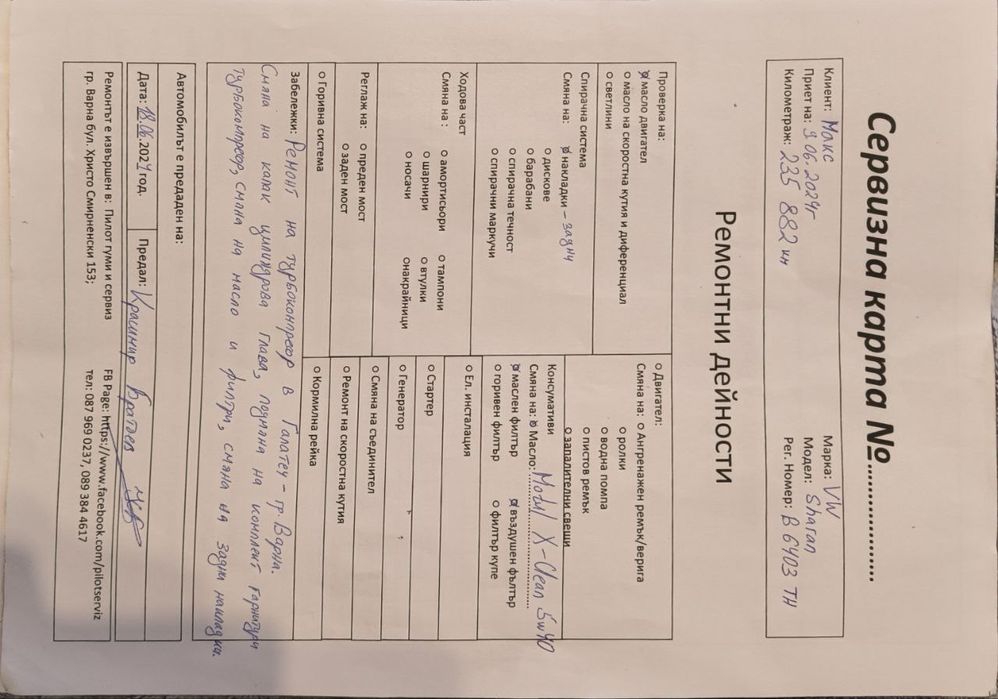 Сервизна карта №........................
Клиент: Макс Марка: VW
Приет на: 9.06.2024г Модел: Sharan
Километраж: 235 882 км Рег. Номер: В 6403 ТН
Ремонтни дейности
Проверка на:
масло двигател
о масло на скоростна кутия и диференциал
о светлини
Спирачна система
Смяна на: накладки - задни
о дискове
о барабани
о спирачна течност
о спирачни маркучи
Ходова част
Смяна на : о амортисьори о тампони
о шарнири о втулки
о носачи онакрайници
Реглаж на: о преден мост
о заден мост
о Горивна система
о Двигател:
Смяна на: о Ангренажен ремък/верига
о ролки
о водна помпа
о пистов ремък
о запалителни свещи
Консумативи
Смяна на: о Масло: Motul X-Clean 5w40
маслен филтър въздушен фълтър
о горивен филтър о филтър купе
о Ел. инсталация
о Стартер
о Генератор
о Смяна на съединител
о Ремонт на скоростна кутия
о Кормилна рейка
Забележки: Ремонт на турбокомпресор в Галатеч - гр. Варна.
Смяна на капак цилиндрова глава, подмяна на комплект гарнитури
турбокомпресор, смяна на масло и филтри, смяна на задни накладки.
Автомобилът е предаден на:
Дата: 18.06.2024 год. Предал: Красимир Братоев
Ремонтът е извършен в: Пилот гуми и сервиз FB Page: https://www.facebook.com/pilotserviz
гр. Варна бул. Христо Смирненски 153; тел: 087 969 0237, 089 384 4617